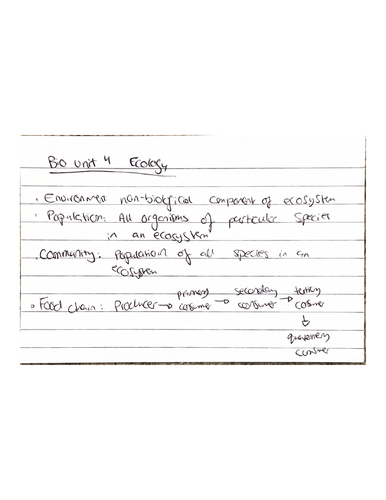 Bio unit 4 Ecology
• Environment: non-biological component of ecosystem
• Population: All organisms of particular species
in an ecosystem
• Community: Population of all species in an
ecosystem
• Food chain: Producer → primary consumer → secondary consumer → tertiary consumer
↓
quaternary
consumer